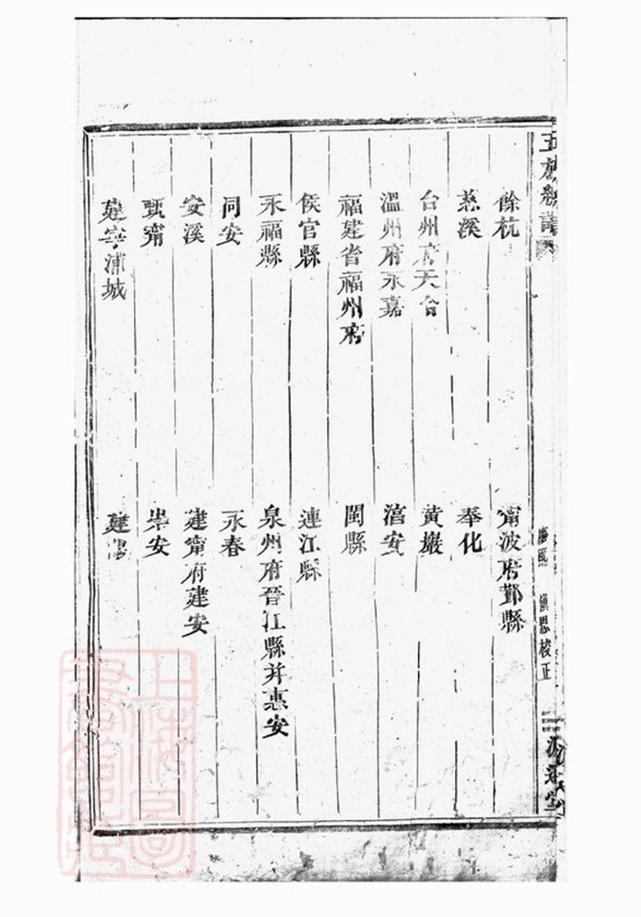 餘杭 甯波府鄞縣
慈溪 奉化
台州府天台 黃巖
溫州府永嘉 瑞安
福建省福州府 閩縣
侯官縣 連江縣
永福縣 泉州府晉江縣并惠安
同安 永春
安溪 建甯府建安
甌甯 崇安
建寧浦城 建陽